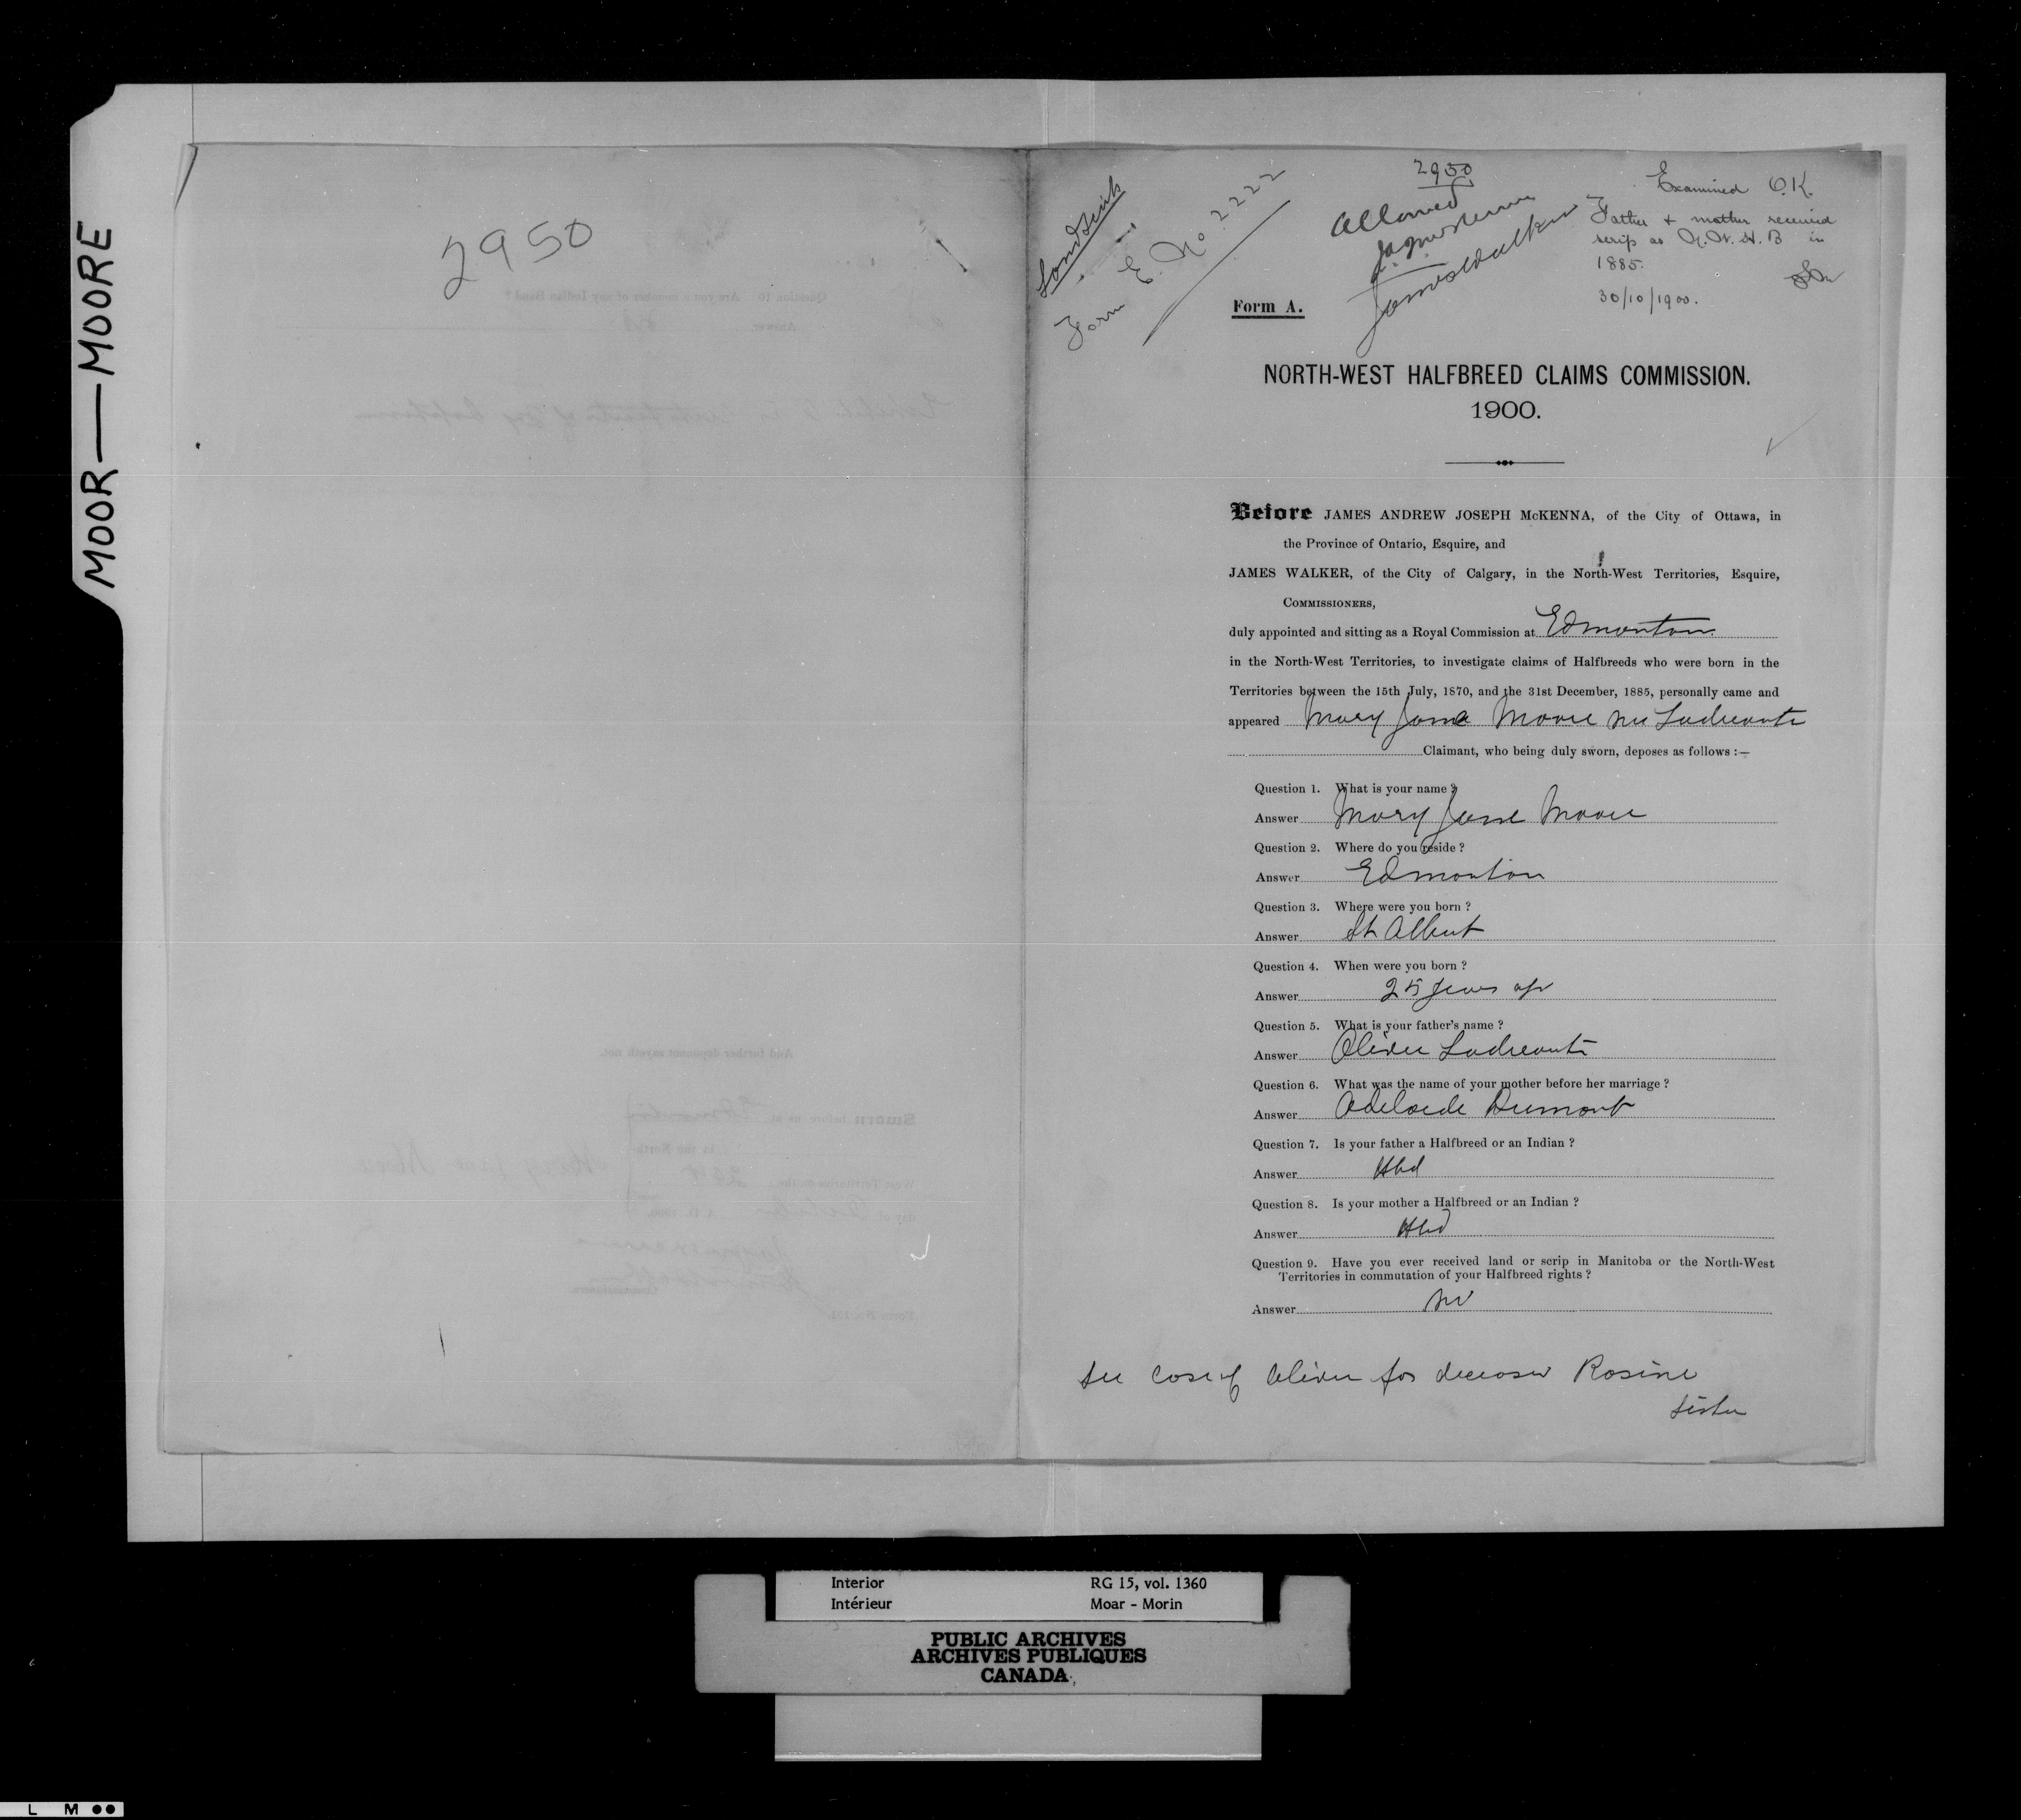 MOOR—MOORE
2950
Land Scrip
Form E. No. 2222
2950
Allowed
James Walker
Examined O.K.
Father & mother received
scrip as N.W.H.B in
1885.
30/10/1900.
Form A.
NORTH-WEST HALFBREED CLAIMS COMMISSION.
1900.
Before JAMES ANDREW JOSEPH McKENNA, of the City of Ottawa, in
the Province of Ontario, Esquire, and
JAMES WALKER, of the City of Calgary, in the North-West Territories, Esquire,
COMMISSIONERS,
duly appointed and sitting as a Royal Commission at Edmonton
in the North-West Territories, to investigate claims of Halfbreeds who were born in the
Territories between the 15th July, 1870, and the 31st December, 1885, personally came and
appeared Mary Jane Moore nee Ladreoute
Claimant, who being duly sworn, deposes as follows :—
Question 1. What is your name ?
Answer Mary Jane Moore
Question 2. Where do you reside ?
Answer Edmonton
Question 3. Where were you born ?
Answer St Albert
Question 4. When were you born ?
Answer 25 years ago
Question 5. What is your father's name ?
Answer Olivier Ladreoute
Question 6. What was the name of your mother before her marriage ?
Answer Adelaide Dumont
Question 7. Is your father a Halfbreed or an Indian ?
Answer Hbd
Question 8. Is your mother a Halfbreed or an Indian ?
Answer Hbd
Question 9. Have you ever received land or scrip in Manitoba or the North-West
Territories in commutation of your Halfbreed rights ?
Answer no
See case of Olivier for deceased Rosine
sister
Interior RG 15, vol. 1360
Intérieur Moar - Morin
PUBLIC ARCHIVES
ARCHIVES PUBLIQUES
CANADA
L M